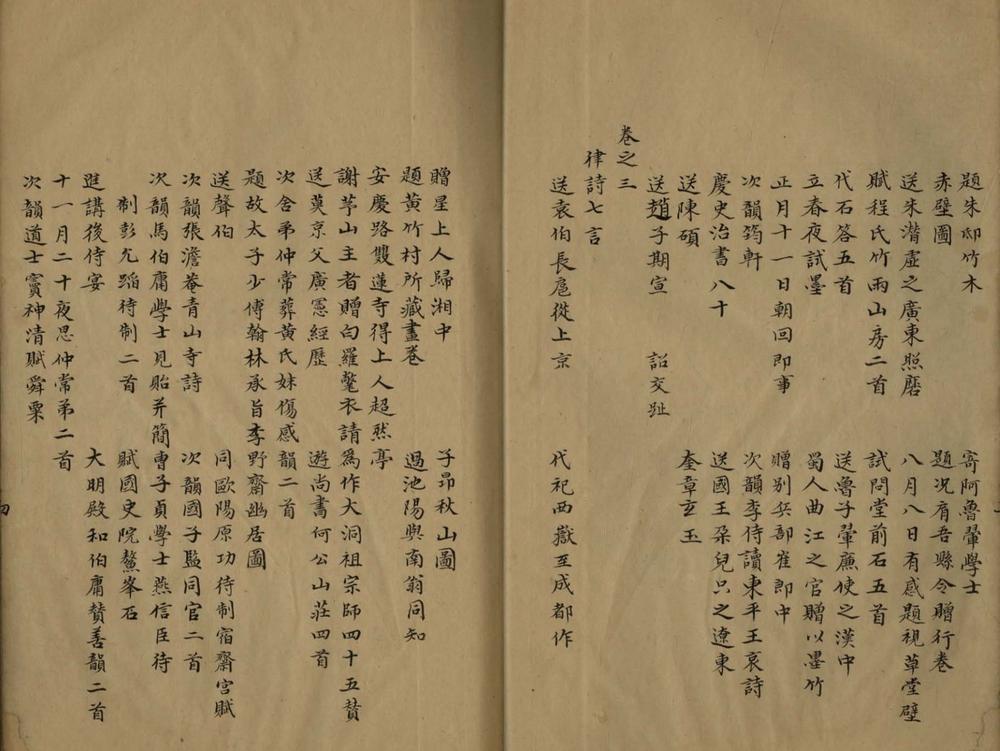 題朱邸竹木　寄阿魯翬學士
赤壁圖　題况肩吾縣令贈行卷
送朱潛虛之廣東照磨　八月八日有感題視草堂壁
賦程氏竹雨山房二首　試問堂前石五首
代石答五首　送魯子翬廉使之漢中
立春夜試墨　蜀人曲江之官贈以墨竹
正月十一日朝回即事　贈別兵部崔郎中
次韻筠軒　次韻李侍讀東平王哀詩
慶史治書八十　送國王朶兒只之遼東
送陳碩　奎章玄玉
送趙子期宣　詔交趾
卷之三
律詩七言
送袁伯長扈從上京　代祀西嶽至成都作
贈星上人歸湘中　子昂秋山圖
題黃竹村所藏畫卷　過池陽與南翁同知
安慶路雙蓮寺得上人超然亭
謝茅山主者贈白羅氅衣請為作大洞祖宗師四十五贊
送莫京父廣憲經歷　遊尚書何公山莊四首
次舍弟仲常葬黃氏妹傷感韻二首
題故太子少傅翰林承旨李野齋幽居圖
送聲伯　同歐陽原功待制宿齋宮賦
次韻張澹菴青山寺詩　次韻國子監同官二首
次韻馬伯庸學士見貽并簡曹子貞學士燕信臣待
制彭允蹈待制二首　賦國史院鰲峯石
進講後侍宴　大明殿和伯庸贊善韻二首
十一月二十夜思仲常弟二首
次韻道士竇神清賦舜粟